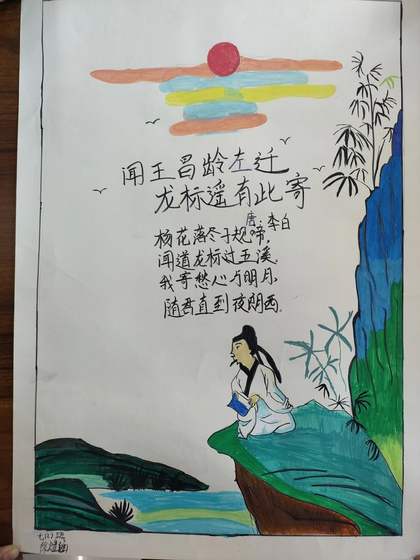 闻王昌龄左迁
龙标遥有此寄
唐、李白
杨花落尽子规啼,
闻道龙标过五溪,
我寄愁心与明月,
随君直到夜郎西.